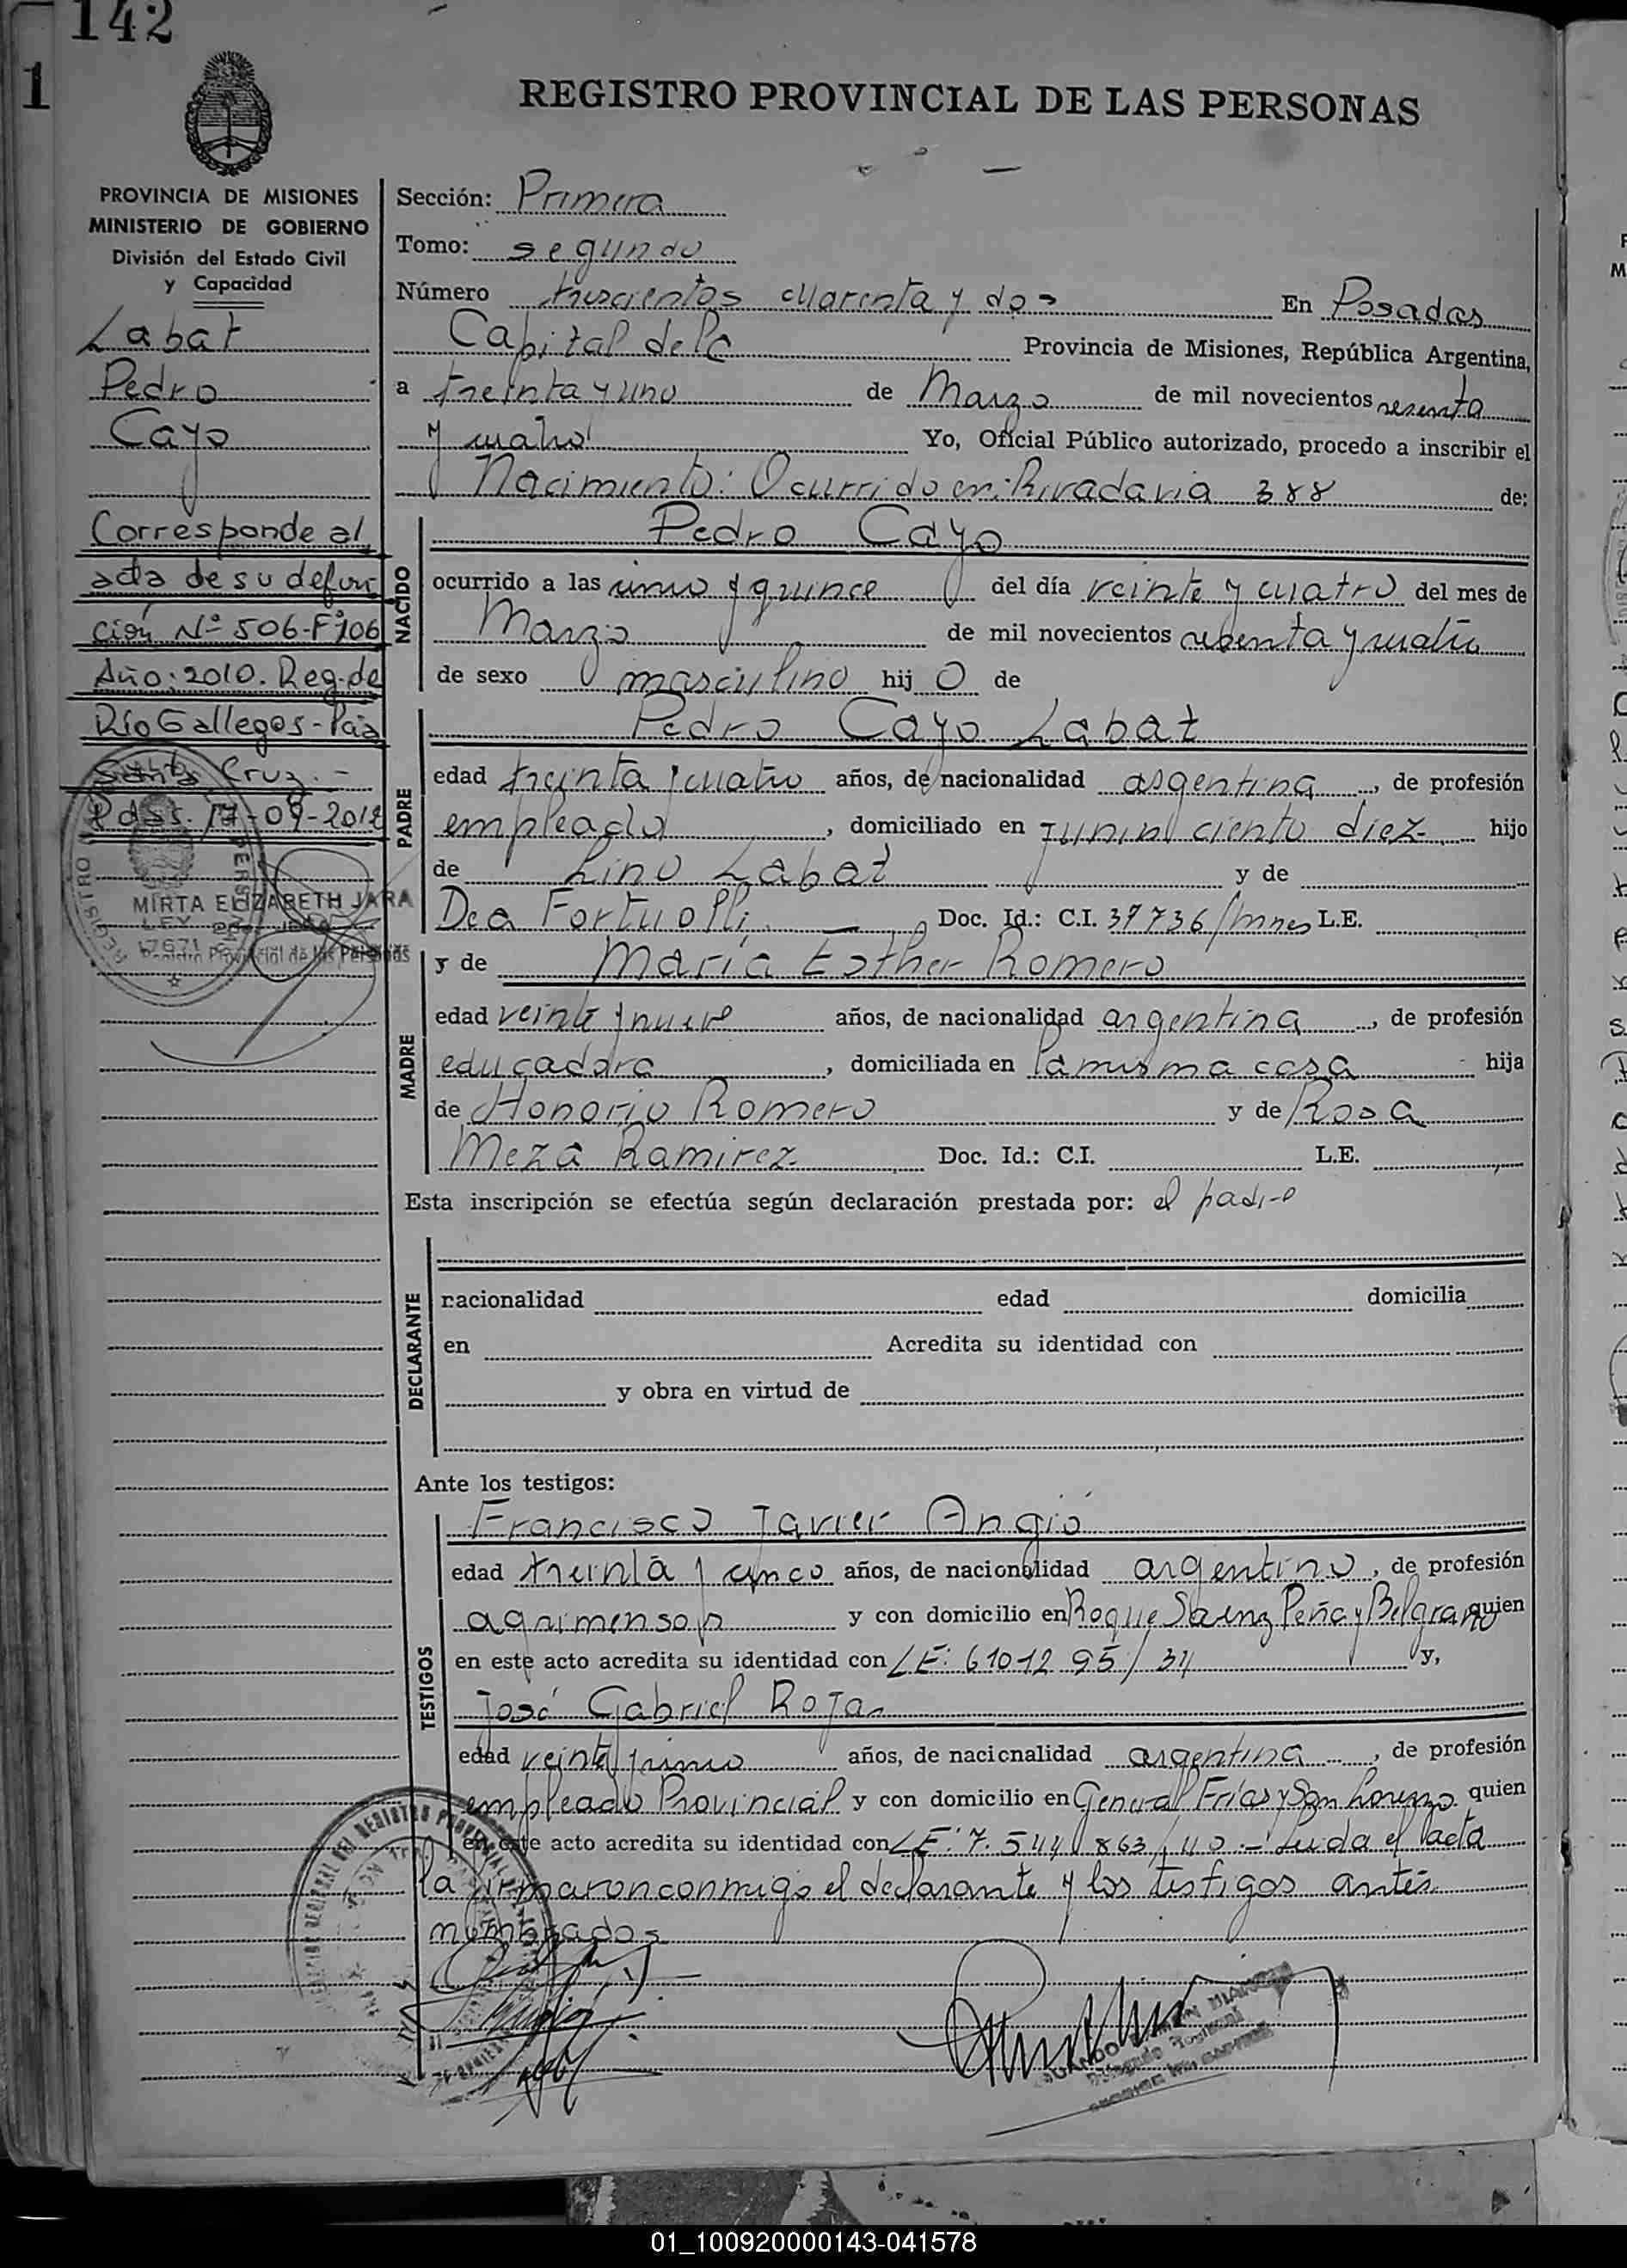 142
1
REGISTRO PROVINCIAL DE LAS PERSONAS
PROVINCIA DE MISIONES
MINISTERIO DE GOBIERNO
División del Estado Civil
y Capacidad
Labat
Pedro
Cayo
Corresponde al
acta de su defun
ción Nº 506-Fº106
Año: 2010. Reg. de
Río Gallegos - Pcia
Santa Cruz. -
Pdas. 17-09-2012
MIRTA ELIZABETH JARA
LEY
17671
Registro Provincial de las Personas
Sección: Primera
Tomo: segundo
Número trescientos cuarenta y dos En Posadas
Capital de la Provincia de Misiones, República Argentina,
a treinta y uno de Marzo de mil novecientos sesenta
y cuatro Yo, Oficial Público autorizado, procedo a inscribir el
Nacimiento: Ocurrido en: Rivadavia 388 de:
NACIDO
Pedro Cayo
ocurrido a las una y quince del día veinte y cuatro del mes de
Marzo de mil novecientos sesenta y cuatro
de sexo masculino hijo de
PADRE
Pedro Cayo Labat
edad treinta y cuatro años, de nacionalidad argentina, de profesión
empleado, domiciliado en Junin ciento diez hijo
de Lino Labat y de
Doc. Id.: C.I. 37736/Mnes L.E.
MADRE
y de María Esther Romero
edad veinte y nueve años, de nacionalidad argentina, de profesión
educadora, domiciliada en la misma casa hija
de Honorio Romero y de Rosa
Meza Ramirez Doc. Id.: C.I. L.E.
Esta inscripción se efectúa según declaración prestada por: el padre
DECLARANTE
nacionalidad edad domicilia
en Acredita su identidad con
y obra en virtud de
Ante los testigos:
TESTIGOS
Francisco Javier Angió
edad treinta y cinco años, de nacionalidad argentino, de profesión
agrimensor y con domicilio en Roque Saenz Peña y Belgrano quien
en este acto acredita su identidad con LE: 6101295/34 y,
José Gabriel Rojas
edad veinte y uno años, de nacionalidad argentina, de profesión
empleado Provincial y con domicilio en General Frías y San Lorenzo quien
en este acto acredita su identidad con LE: 7.544.863/40.- Leída el acta
la firmaron conmigo el declarante y los testigos antes
nombrados
01_100920000143-041578